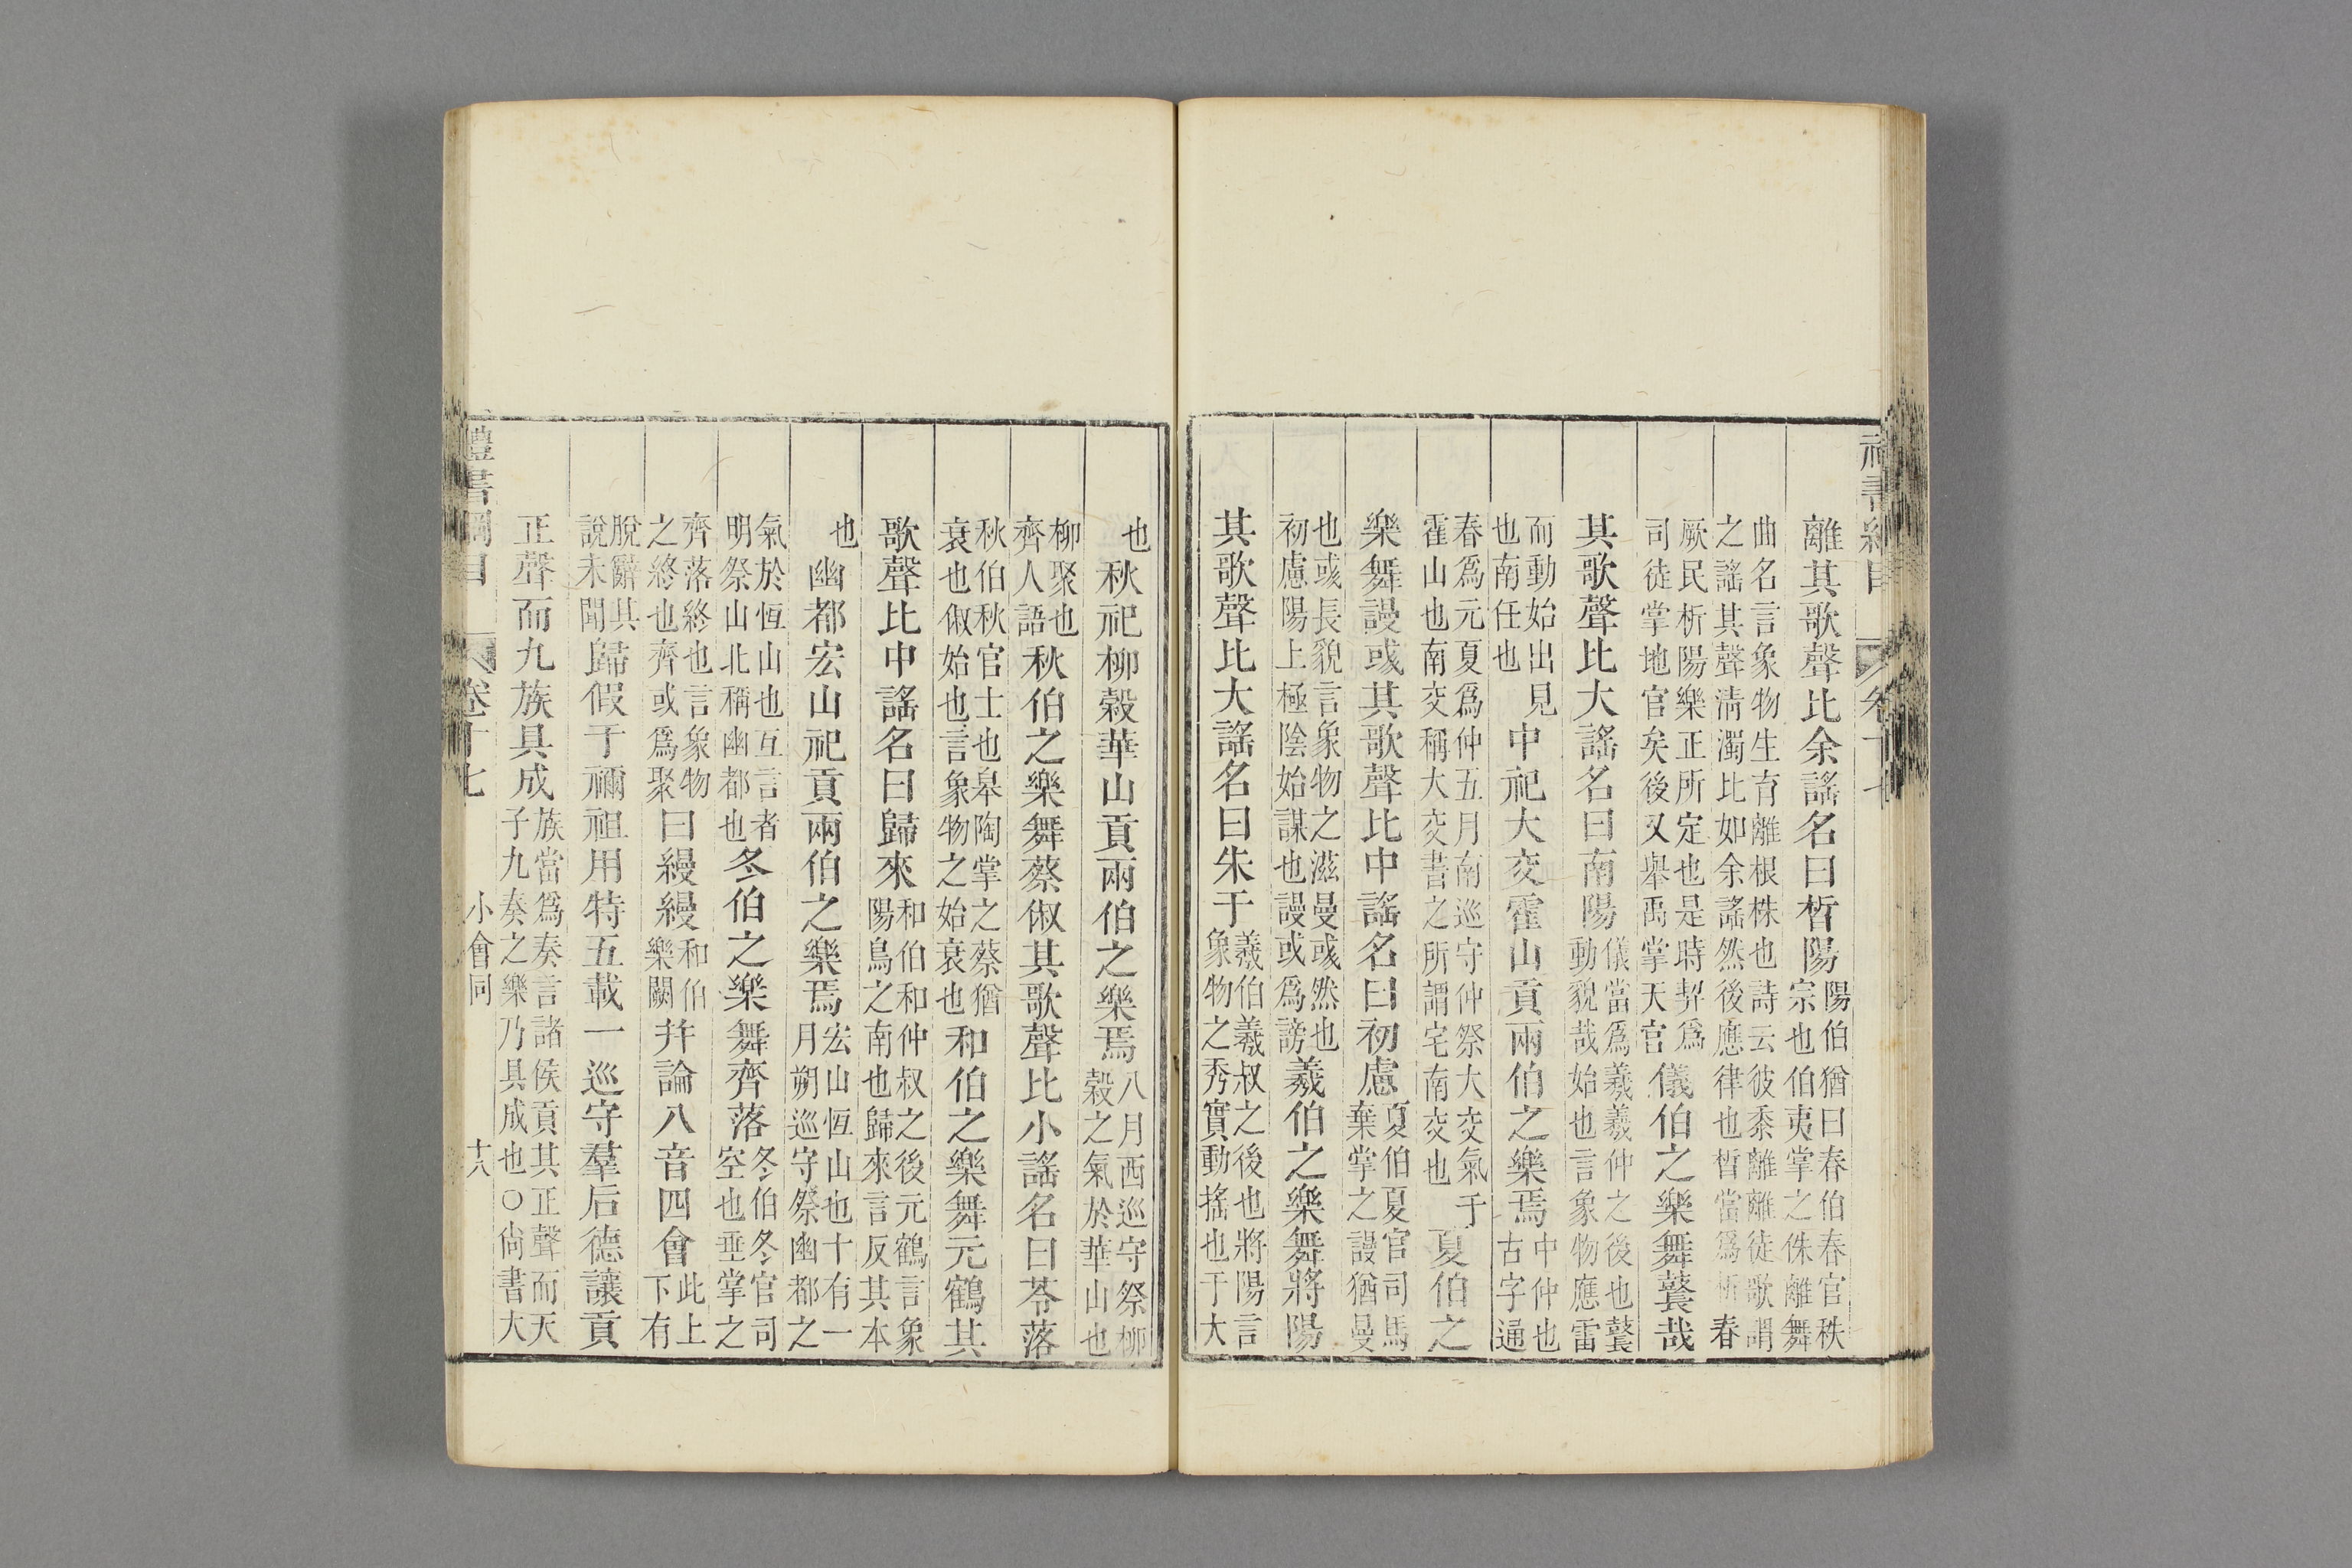 離其歌聲比余謠名曰晳陽陽伯猶曰春伯春官秩宗也伯夷掌之侏離舞
曲名言象物生育離根株也詩云彼黍離離徒歌謂之謠其聲清濁比如余謠然後應律也晳當爲析春
厥民析陽樂正所定也是時契爲司徒掌地官矣後又舉禹掌天官儀伯之樂舞鼚哉
其歌聲比大謠名曰南陽儀當爲羲羲仲之後也鼚動貌哉始也言象物應雷
而動始出見也南任也中祀大交霍山貢兩伯之樂焉中仲也古字通
春爲元夏爲仲五月南巡守仲祭大交氣于霍山也南交稱大交書之所謂宅南交也夏伯之
樂舞謾彧其歌聲比中謠名曰初慮夏伯夏官司馬棄掌之謾猶曼
也彧長貌言象物之滋曼彧然也初慮陽上極陰始謀也謾或爲謗羲伯之樂舞將陽
其歌聲比大謠名曰朱于羲伯羲叔之後也將陽言象物之秀實動搖也于大
也秋祀柳榖華山貢兩伯之樂焉八月西巡守祭柳榖之氣於華山也
柳聚也齊人語秋伯之樂舞蔡俶其歌聲比小謠名曰苓落
秋伯秋官士也皋陶掌之蔡猶衰也俶始也言象物之始衰也和伯之樂舞元鶴其
歌聲比中謠名曰歸來和伯和仲叔之後元鶴言象陽鳥之南也歸來言反其本
也幽都宏山祀貢兩伯之樂焉宏山恆山也十有一月朔巡守祭幽都之
氣於恆山也互言者明祭山北稱幽都也冬伯之樂舞齊落冬伯冬官司空也垂掌之
齊落終也言象物之終也齊或爲聚曰縵縵和伯樂闕幷論八音四會此上下有
脫辭其說未聞歸假于禰祖用特五載一巡守羣后德讓貢
正聲而九族具成族當爲奏言諸侯貢其正聲而天子九奏之樂乃具成也○尙書大
禮書綱目 卷十七 小會同 十八